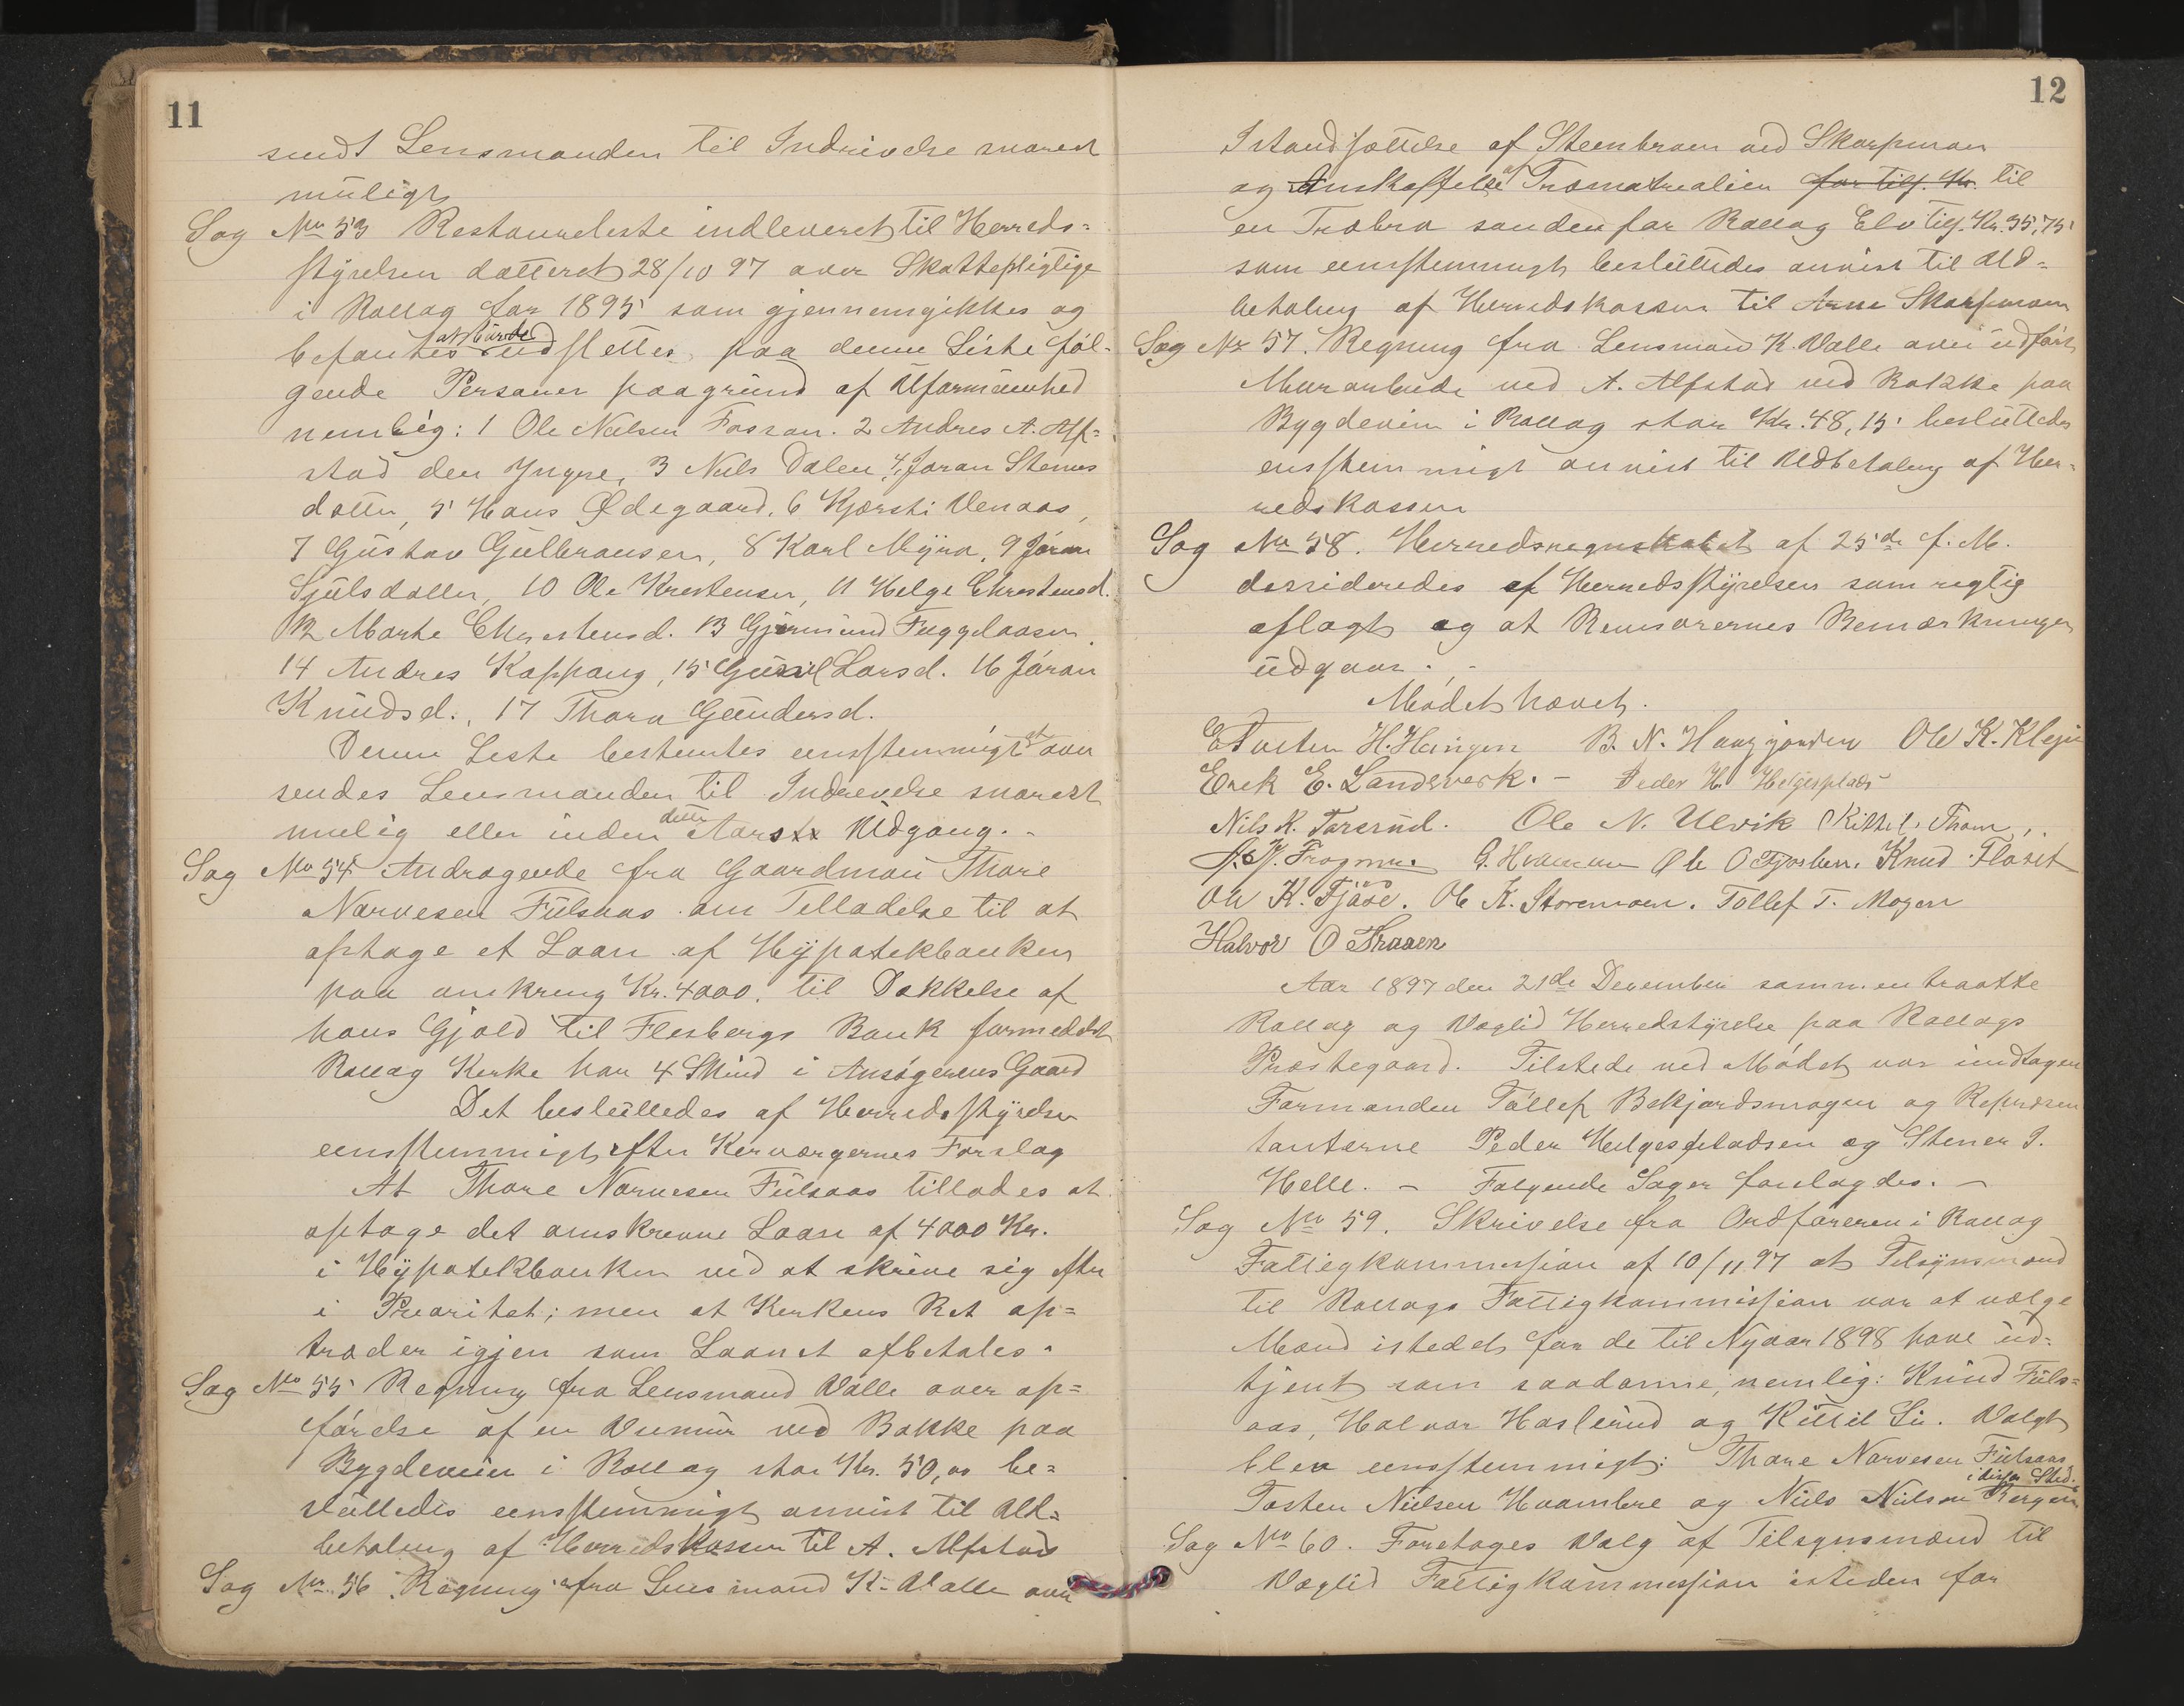 11
sendt Lensmanden til Indrivelse snarest
muligt
Sag No 53 Restanceliste indleveret til Herreds-
styrelsen datteret 28/10 97 over Skattepligtige
i Rollag for 1895 som gjennemgikkes og
befantes at burde udslettes paa denne Liste føl-
gende Personer paagrund af Uformuenhed
nemlig: 1 Ole Nielsen Fossan. 2 Andres A. Alf-
stad den Yngre, 3 Niels Dalen 4, Jøran Steners
datter, 5 Hans Ødegaard, 6 Kjersti Venaas,
7 Gustav Gulbransen, 8 Karl Myra, 9 Jøran
Sjulsdatter, 10 Ole Kristensen, 11 Helge Christensd.
12 Marte Christensd. 13 Gjermund Fuggelaasen,
14 Andres Kappang, 15 Guri Larsd. 16 Jøran
Knudsd., 17 Thora Gundersd.
Denne Liste bestemtes eensstemmigt at over
sendes Lensmanden til Indrivelse snarest
mulig eller inden dette Aars Udgang. -
Sag No 54 Andragende fra Gaardman Thore
Narvesen Fulsaas om Tilladelse til at
optage et Laan af Hypotekbanken
paa omkring Kr. 4000, til Dækkelse af
hans Gjæld til Flesbergs Bank formedelst
Rollag Kirke har 4 Skind i Ansøgerens Gaard
Det besluttedes af Herredsstyrelsen
eensstemmigt efter Kirværgernes Forslag
At Thore Narvesen Fulsaas tillades at
optage det omskrevne Laan af 4000 Kr.
i Hypotekbanken ved at skrive sig efter
i Prioritet; men at Kirkens Ret op-
træder igjen som Laanet afbetales.
Sag No 55 Regning fra Lensmand Valle over op-
førelse af en Veimur ved Bakke paa
Bygdeveien i Rollag stor Kr. 50,00 be-
sluttedes eensstemmigt anvist til Ud-
betaling af Herredskassen til A. Alfstad
Sag No 56 Regning fra Lensmand K. Valle over
12
Istandsættelse af Steenbroen ved Skarpmoen
og Anskaffelse af Træmatrealier for tils. Kr. til
en Træbro søndenfor Rollag Elv tils. Kr. 35,75
som eensstemmigt besluttedes anvist til Ud-
betaling af Herredskassen til Arne Skarpmoen
Sag No 57. Regning fra Lensmand K. Valle over udført
Murarbeide ved A. Alfstad ved Bakke paa
Bygdeveien i Rollag stor Kr. 48,15 besluttedes
eensstemmigt anvist til Udbetaling af Her-
redskassen
Sag No 58. Herredsregnskabet af 25de f. M.
dessideredes af Herredsstyrelsen som regtig
aflagt og at Revisorernes Bemærkninger
udgaar. -
Mødet hævet.
H. Haugen B. N. Ole K. Kleju
Erik E. Landsverk. - Peder H. Helgesplads
Nils K. Torsrud. Ole N. Ulvik Kittil Thom
Frogner G. Ole O Fjosben. Knud Floset
Ole K. Fjøse. Ole K. Storemoen. Tollef T. Mogen
Halvor O Traaen
Aar 1897 den 21de December sammentraatte
Rollag og Veglid Herredstyrelse paa Rollags
Præstegaard. Tilstede ved Mødet var undtagen
Formanden Tollef Bekjordsmogen og Repræsen
tanterne Peder Helgespladsen og Stener J.
Helle. - Følgende Sager forelagdes. -
Sag No 59. Skrivelse fra Ordføreren i Rollag
Fattigkommission af 10/11 97 at Tilsynsmænd
til Rollags Fattigkommission var at vælge
Mænd istedet for de til Nyaar 1898 have ud-
tjent som saadanne, nemlig: Knud Fuls-
aas, Halvor Haslerud og Kittil Li. Valgt
blev eensstemmigt: Thore Narvesen Fulsaas
i disses Sted.
Tosten Nielsen Hvambre og Niels Nielsen Bergan
Sag No 60. Foretages Valg af Tilsynsmænd til
Veglid Fattigkommission isteden for